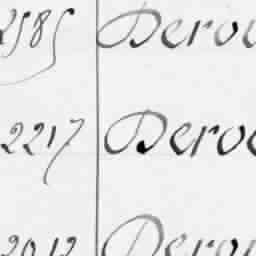 2585 Derou
2217 Deroc
2012 Derou